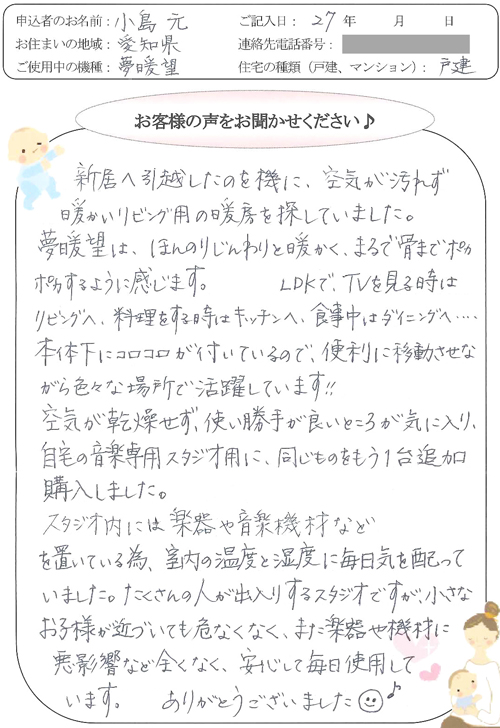 申込者のお名前：小島 元
ご記入日：27年　月　日
お住まいの地域：愛知県
連絡先電話番号：
ご使用中の機種：夢暖望
住宅の種類（戸建、マンション）：戸建
お客様の声をお聞かせください♪
新居へ引越したのを機に、空気が汚れず
暖かいリビング用の暖房を探していました。
夢暖望は、ほんのりじんわりと暖かく、まるで骨までポカ
ポカするように感じます。　LDKで、TVを見る時は
リビングへ、料理をする時はキッチンへ、食事中はダイニングへ‥‥
本体下にコロコロが付いているので、便利に移動させな
がら色々な場所で活躍しています!!
空気が乾燥せず、使い勝手が良いところが気に入り、
自宅の音楽専用スタジオ用に、同じものをもう1台追加
購入しました。
スタジオ内には楽器や音楽機材など
を置いている為、室内の温度と湿度に毎日気を配って
いました。たくさんの人が出入りするスタジオですが、小さな
お子様が近づいても危なくなく、また楽器や機材に
悪影響など全くなく、安心して毎日使用して
います。　ありがとうございました☺♪